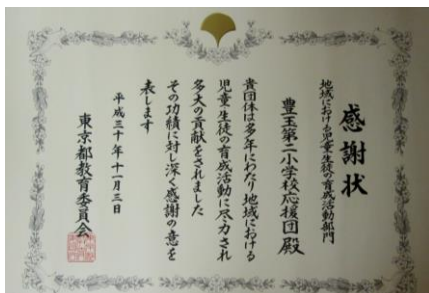 感謝状
地域における児童生徒の育成活動部門
豊玉第二小学校応援団殿
貴団体は多年にわたり地域における
児童生徒の育成活動に尽力され
多大の貢献をされました
その功績に対し深く感謝の意を
表します
平成三十年十一月三日
東京都教育委員会